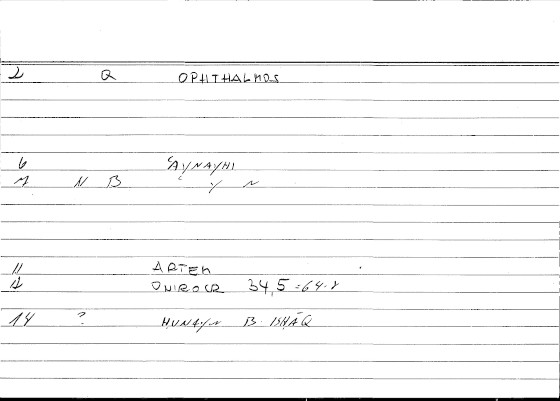 2 Q OPHTHALMOS
6 ʿAYNAYHI
M N B ʿ Y N
11 ARTEM
12 ONIROCR 34,5 = 64.8
14 ? HUNAYN B. ISHĀQ